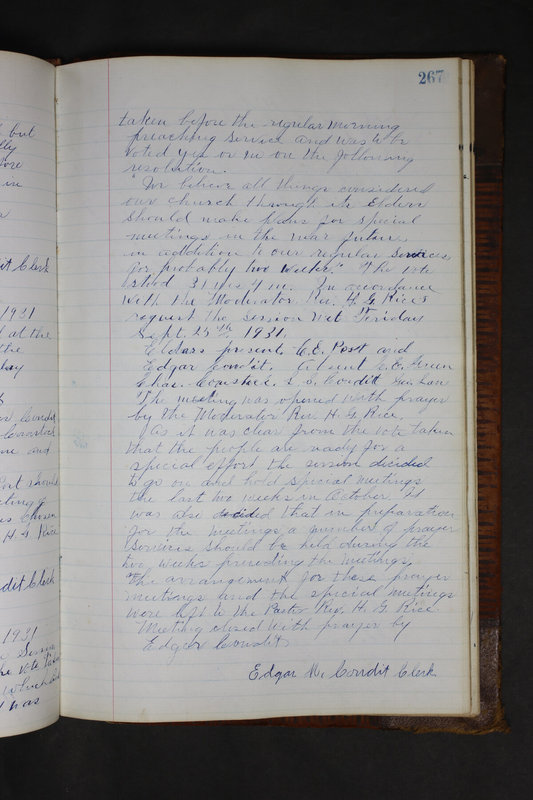 267
taken before the regular morning
preaching service and was to be
voted yes or no on the following
resolution.
"For believe all things considered
our church through its Elders
should make plans for special
meetings in the near future
in addition to our regular services
for probably two weeks." The vote
stood 31 yes 4 no. In accordance
with the Moderator Rev. H. G. Rice's
request the session met Friday
Sept. 25th 1931.
Elders present, C.E. Post and
Edgar Condit. Absent E.E. Green
Chas. Comstock. L. S. Condit Geo. Law
The meeting was opened with prayer
by the Moderator Rev. H. G. Rice.
As it was clear from the vote taken
that the people are ready for a
special effort the session decided
to go on and hold special meetings
the last two weeks in October. It
was also decided that in preparation
for the meetings a number of prayer
services should be held during the
two weeks preceeding the meetings.
The arrangement for these prayer
meetings and the special meetings
were left to the Pastor Rev. H. G. Rice.
Meeting closed with prayer by
Edgar Condit
Edgar N. Condit Clerk
but
in
dit Clerk
1931
at the
the
day
Condit
Comstock
and
Post should
Chosen
H. G. Rice
dit Clerk
1931
vote taken
which
was